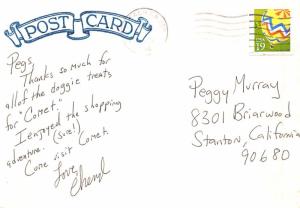 POST CARD
USA
19
Pegs,
Thanks so much for
all of the doggie treats
for "Comet."
I enjoyed the shopping
(sure!)
adventure.
Come visit Comet.
Love,
Cheryl
Peggy Murray
8301 Briarwood
Stanton, California
90680